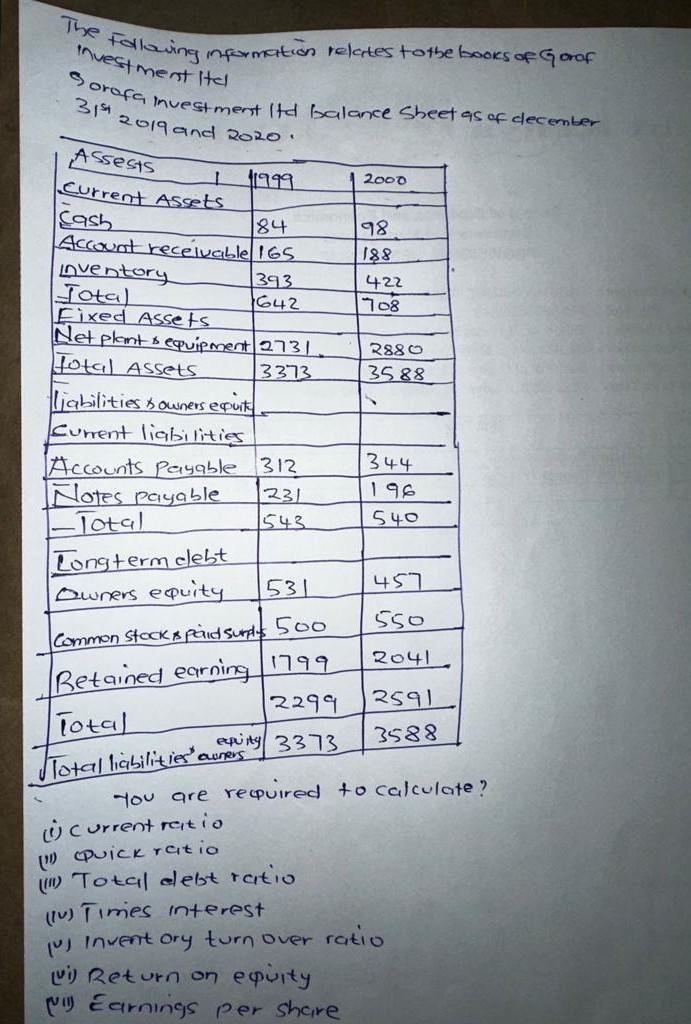 The Following information relates to the books of Goraf
investment ltd
Gorafa investment ltd balance Sheet as of december
31st 2019 and 2020.
Assests 1999 2000
Current Assets
Cash 84 98
Account receivable 165 188
inventory 393 422
Total 642 708
Fixed Assets
Net plant & equipment 2731 2880
Total Assets 3373 3588
liabilities & owners equity
Current liabilities
Accounts Payable 312 344
Notes payable 231 196
- Total 543 540
Longterm debt
Owners equity 531 457
Common stock & paid surplus 500 550
Retained earning 1799 2041
Total 2299 2591
Total liabilities & owners equity 3373 3588
You are required to calculate?
(i) Current ratio
(ii) Quick ratio
(iii) Total debt ratio
(iv) Times interest
(v) Inventory turn over ratio
(vi) Return on equity
(vii) Earnings per share